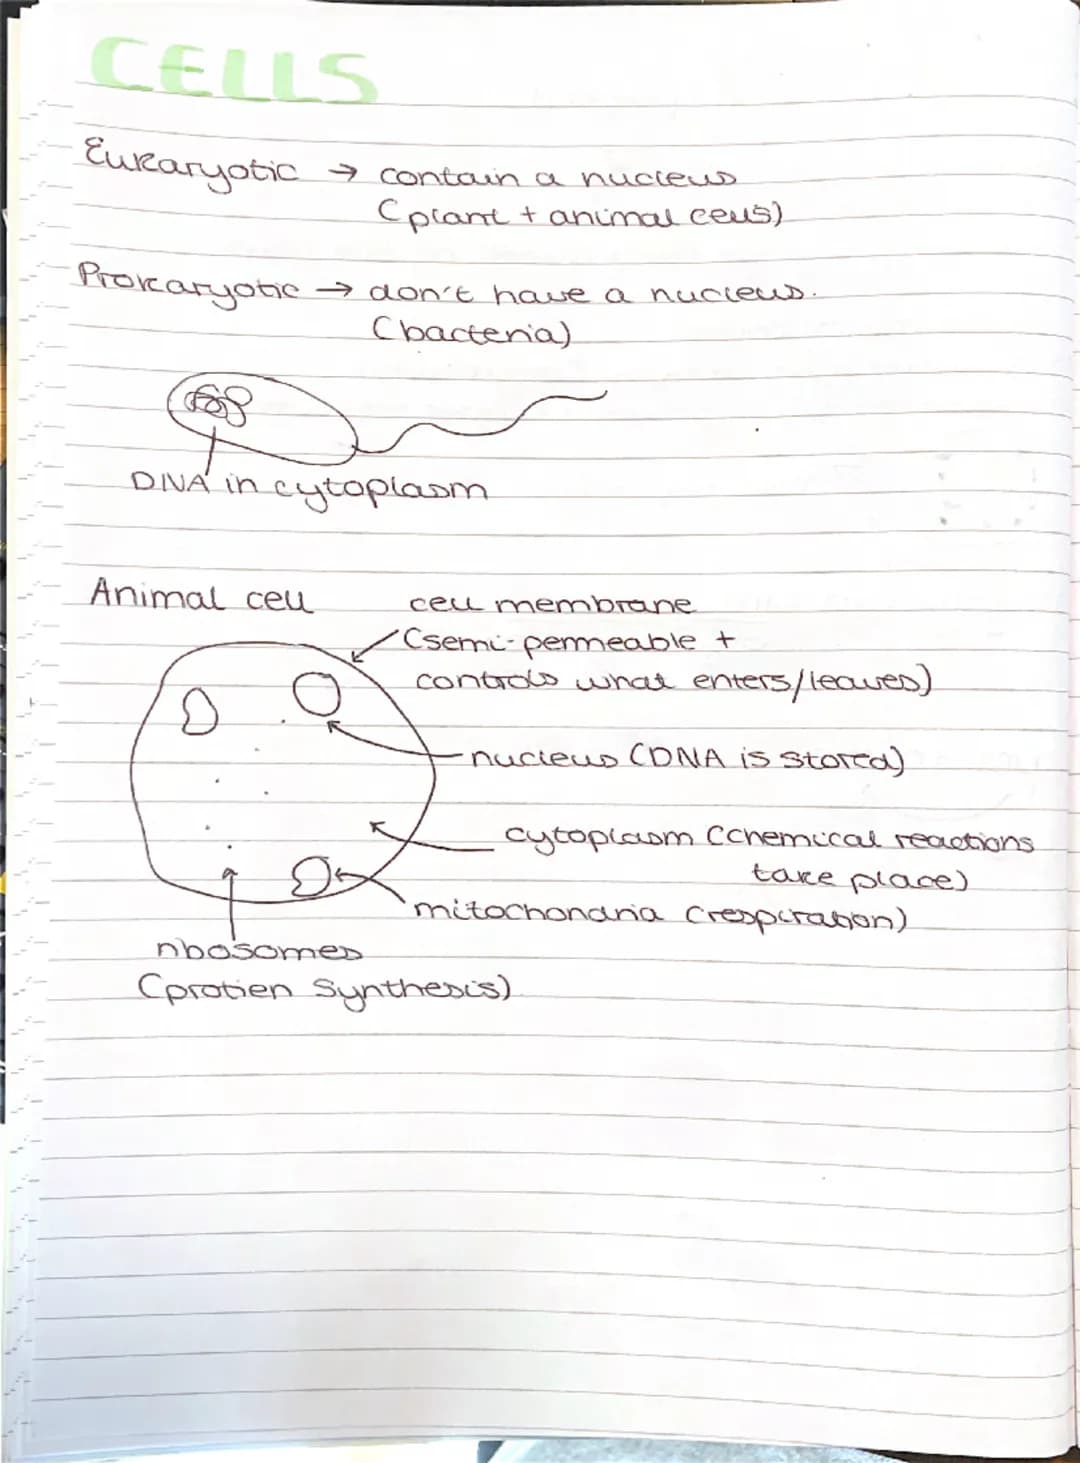 CELLS
Eukaryotic → contain a nucleus
(plant + animal cells)
Prokaryotic → don't have a nucleus.
(bacteria)
DNA in cytoplasm
Animal cell
cell membrane
(semi-permeable +
controls what enters/leaves)
nucleus (DNA is stored)
cytoplasm (chemical reactions
take place)
mitochondria (respiration)
ribosomes
(protien synthesis)